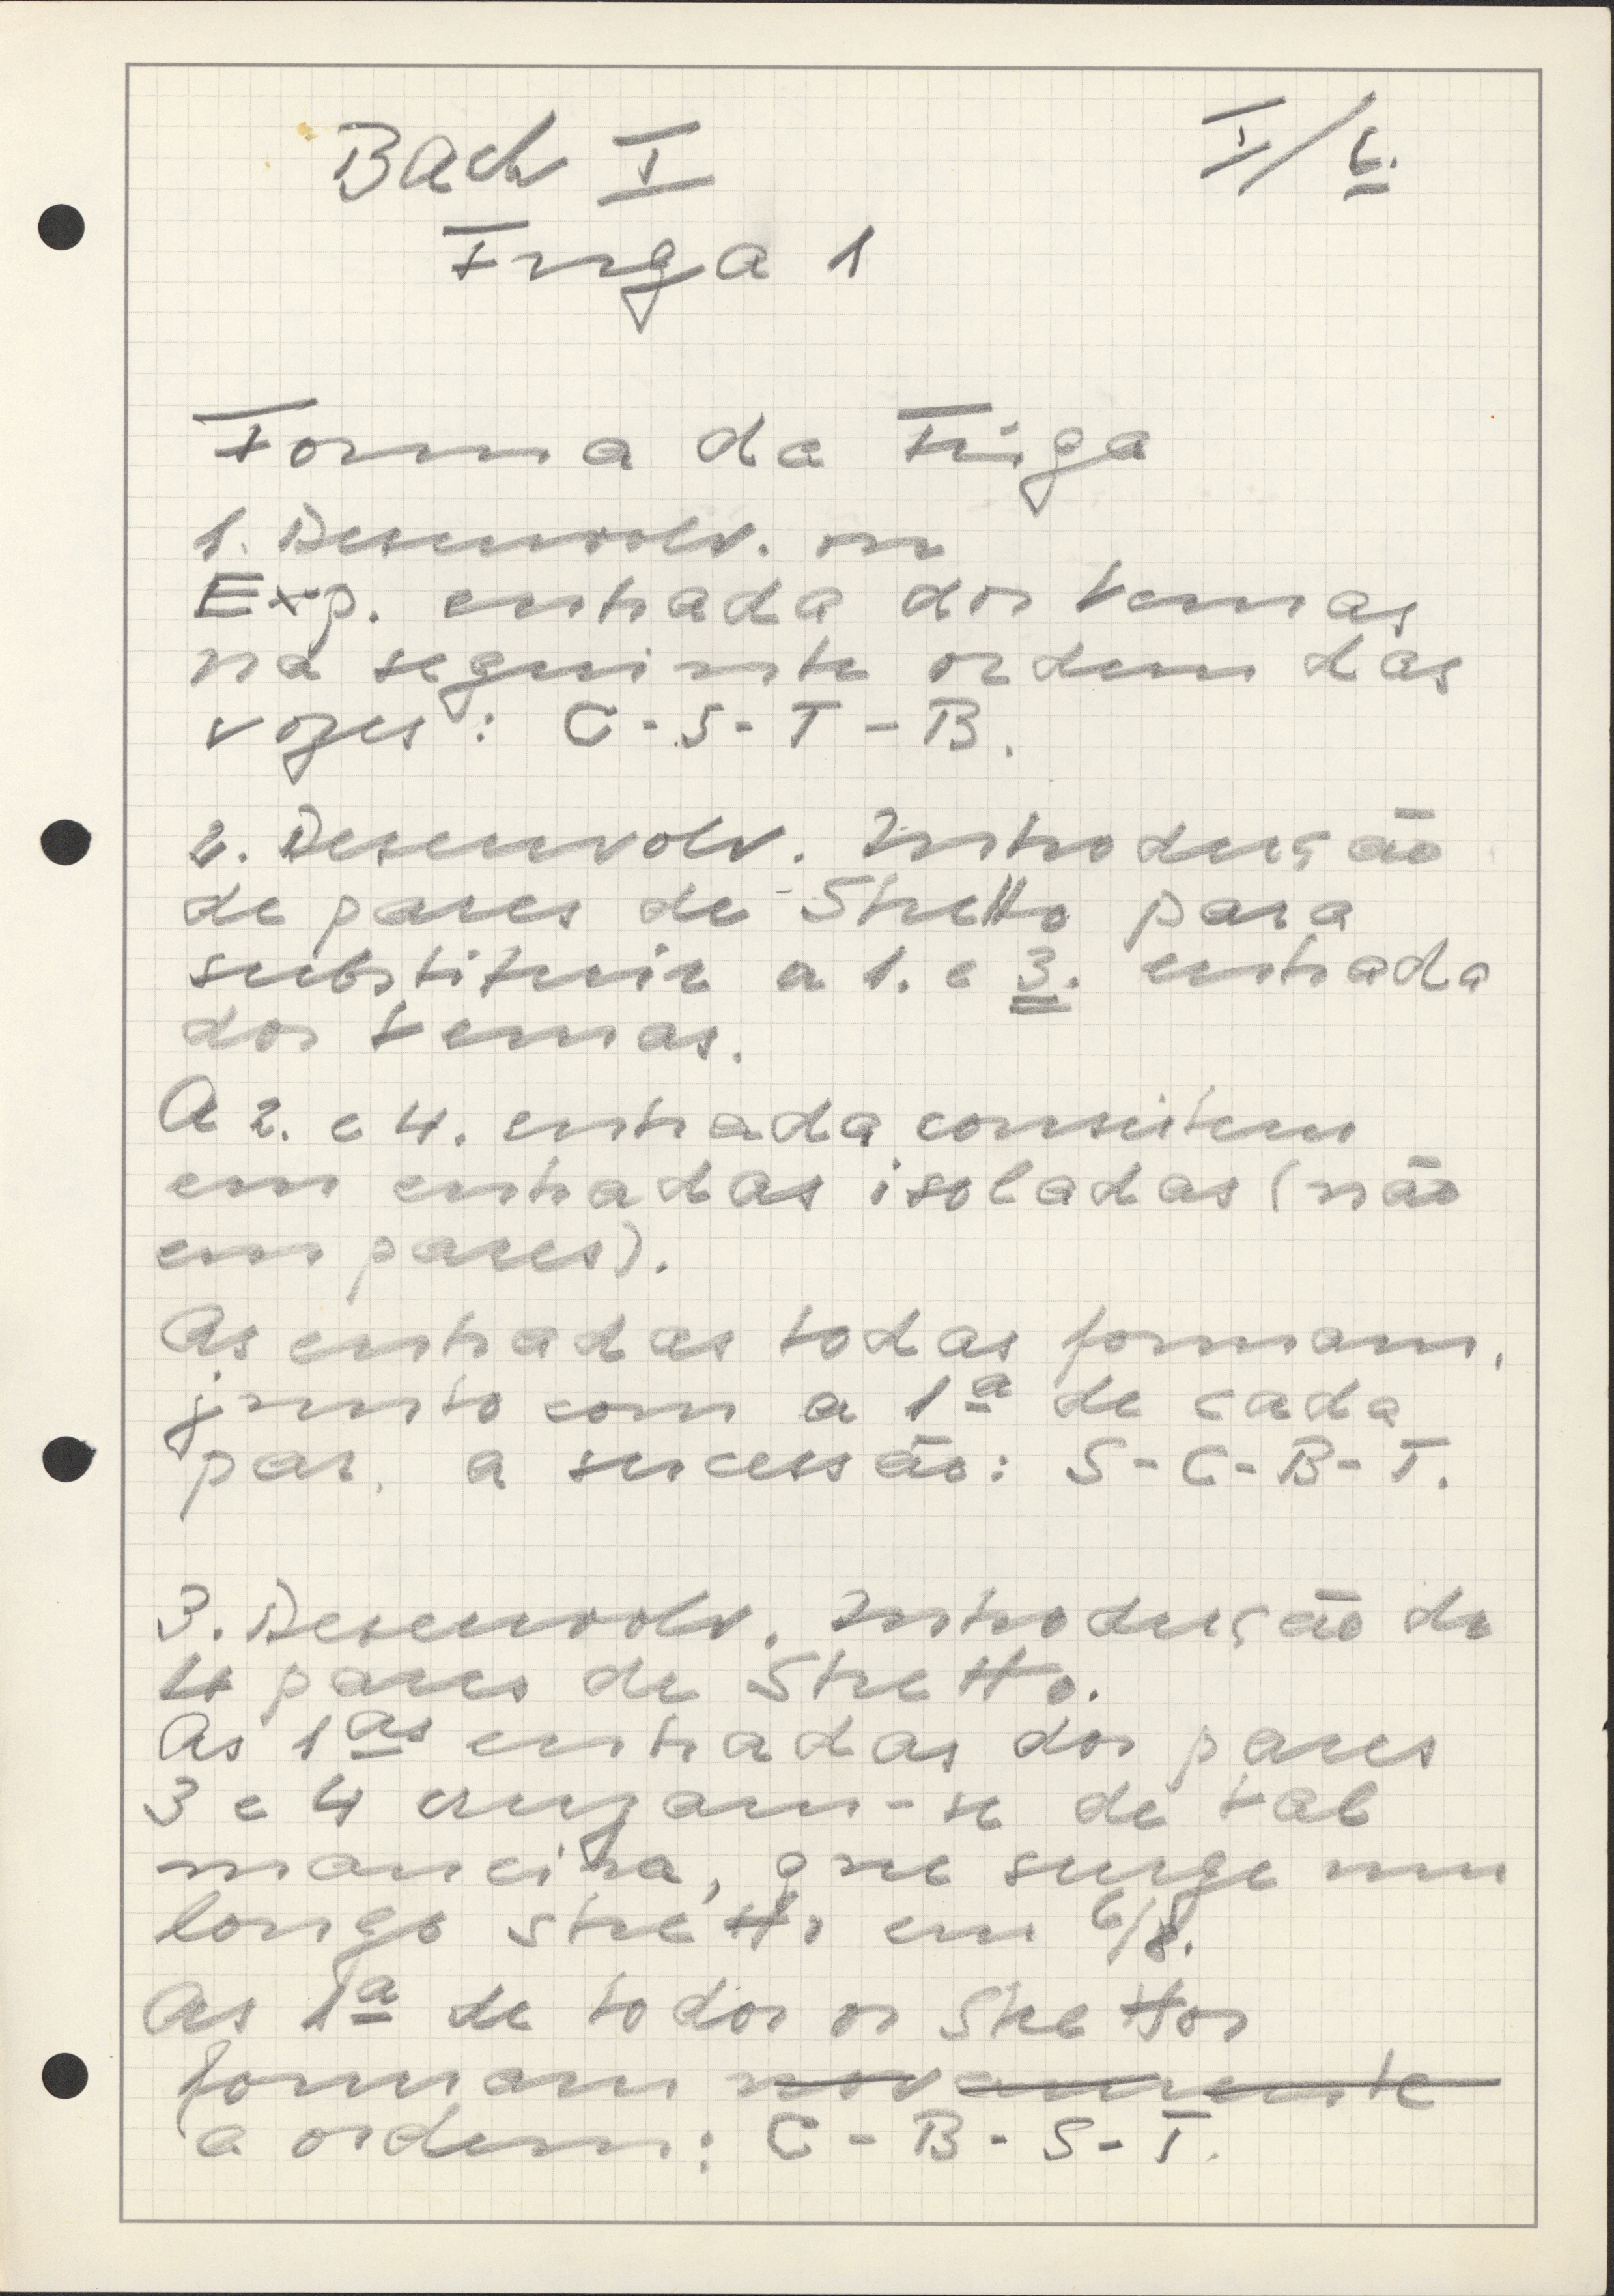 Bach I
I/6.
Fuga 1
Forma da Fuga
1. Desenvolv. ou
Exp. entrada dos temas
na seguinte ordem das
vozes: C-S-T-B.
2. Desenvolv. Introdução
de pares de Stretto para
substituir a 1. e 3. entrada
dos temas.
A 2. e 4. entrada consistem
em entradas isoladas (não
em pares).
As entradas todas formam,
junto com a 1ª de cada
par, a sucessão: S-C-B-T.
3. Desenvolv. Introdução de
4 pares de Stretto.
As 1as entradas dos pares
3 e 4 cruzam-se de tal
maneira, que surge um
longo stretto em 6/8.
As 1ª de todos os Strettos
formam novamente
a ordem: C-B-S-T.